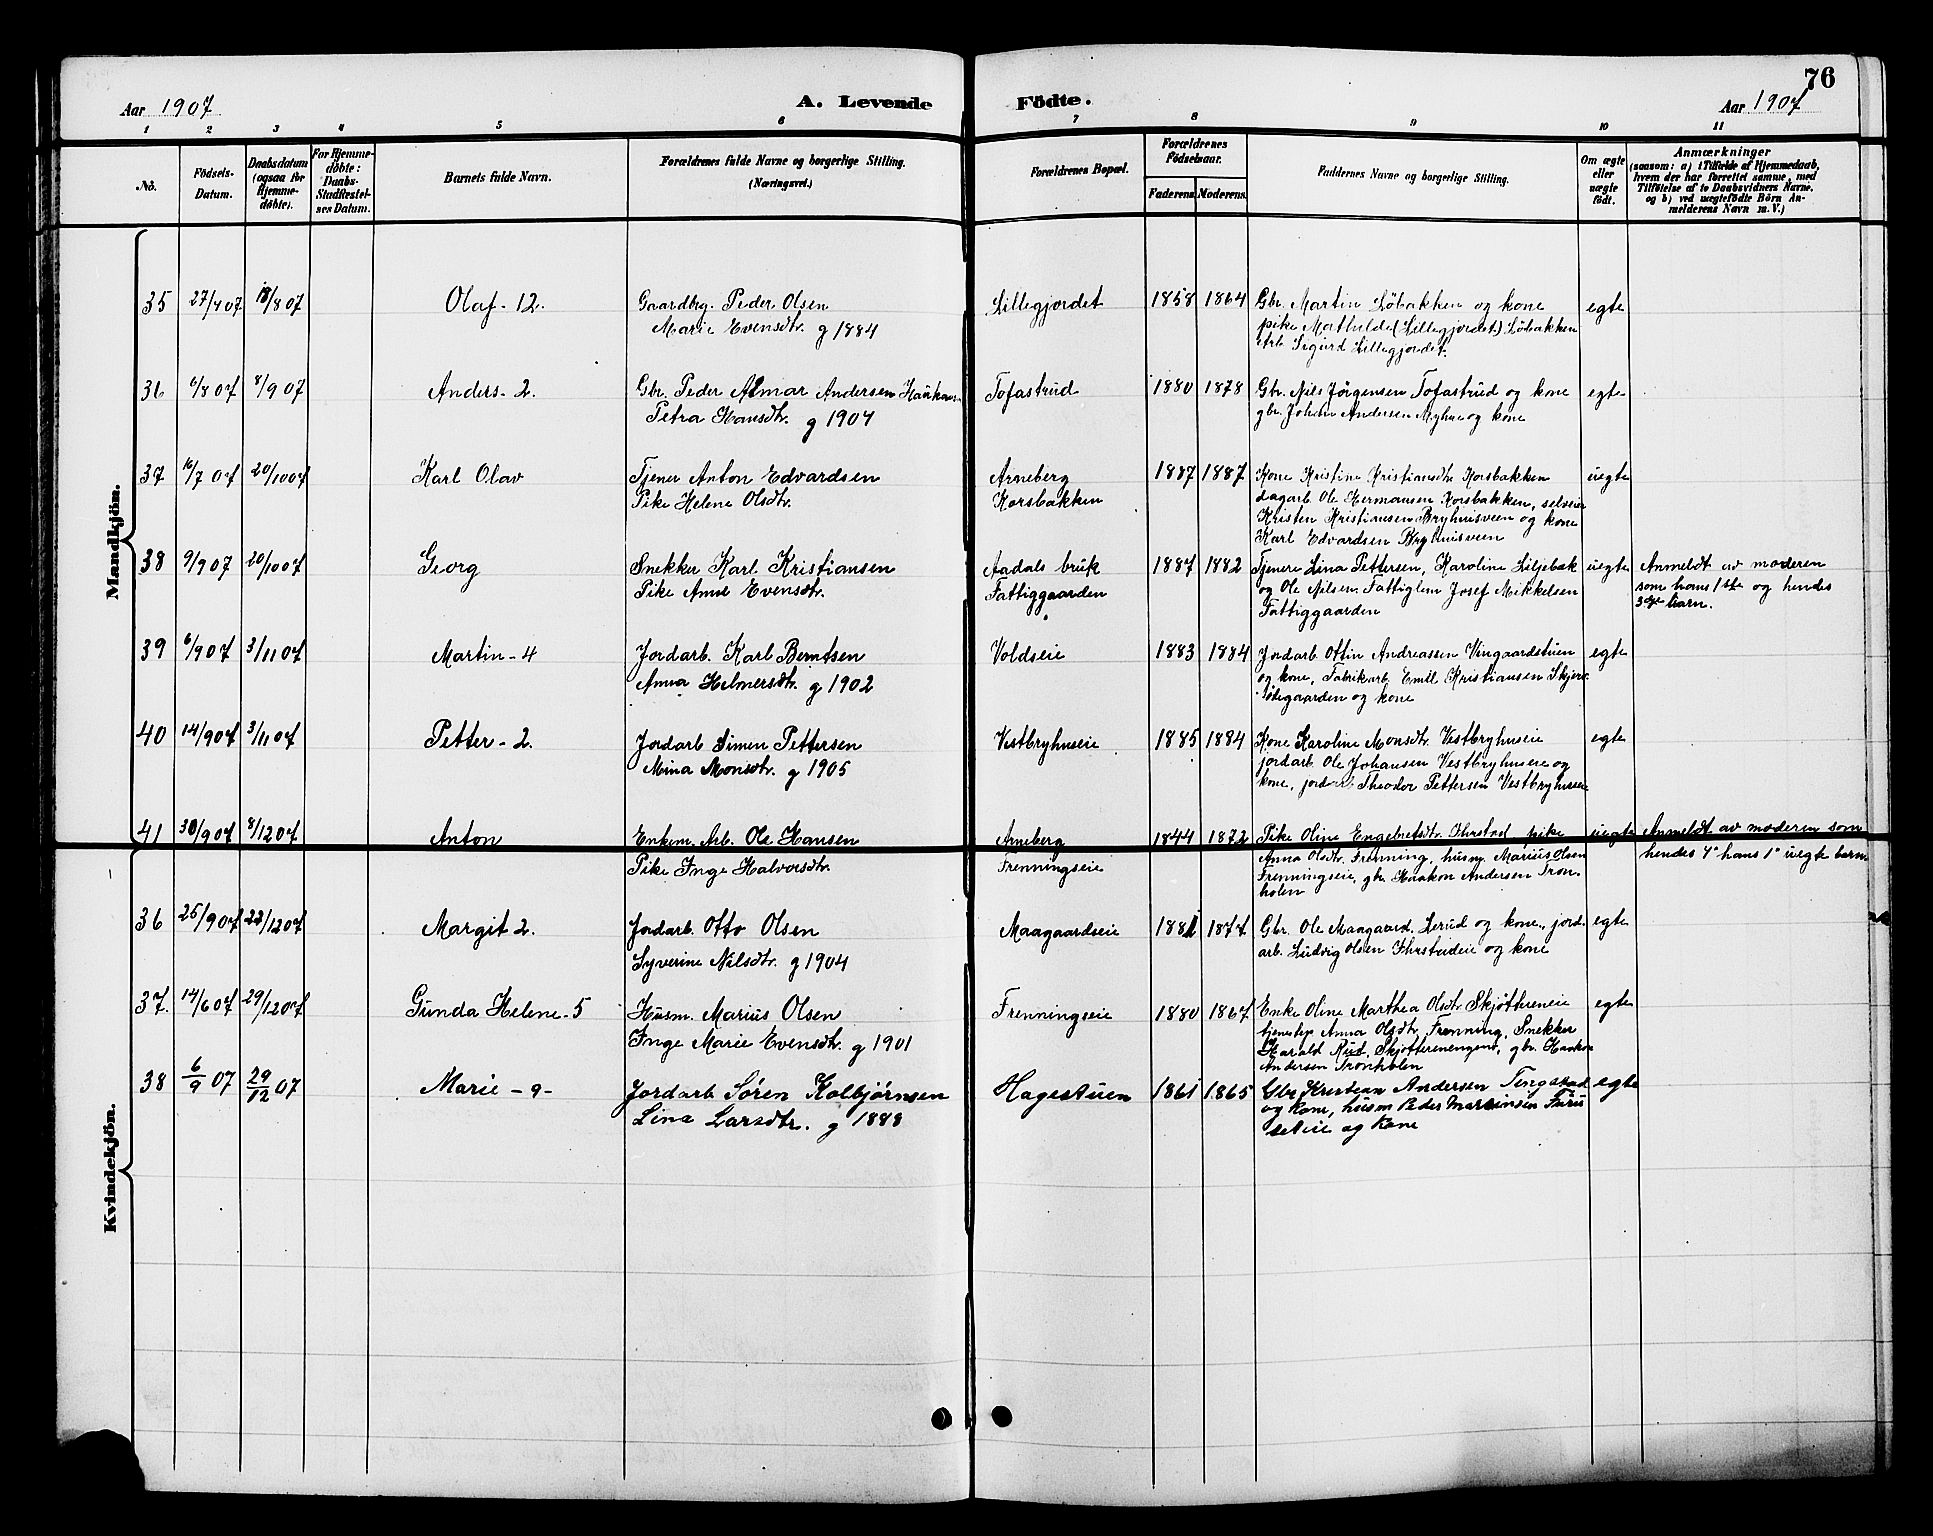 76
Aar 1907
A. Levende Födte.
Aar 1907
1 2 3 4 5 6 7 8 9 10 11
No.
Födsels-Datum.
Daabsdatum (ogsaa for Hjemme-döbte).
For Hjemme-döbte: Daabs-Stadfæstel-ses Datum.
Barnets fulde Navn.
Forældrenes fulde Navne og borgerlige Stilling.
(Næringsvei.)
Forældrenes Bopæl.
Forældrenes Födselsaar.
Faderens Moderens.
Faddernes Navne og borgerlige Stilling.
Om ægte eller uægte födt.
Anmærkninger
(saasom: a) i Tilfælde af Hjemmedaab,
hvem der har forrettet samme, med
Tilföielse af to Daabsvidners Navne.
og b) ved uægtefödte Börn An-
melderens Navn m. V.)
Mandkjön.
35 27/4 07 /8 07 Olaf - 12. Gaardbrg. Peder Olsen Lillegjordet 1858 1864 Gbr. Martin Löbakken og kone egte
Marie Evensdtr. g 1884 pike Mathilde (Lillegjordet) Löbakken
Arb Sigurd Lillegjordet.
36 6/8 07 8/9 07 Anders - 2. Gbr. Peder Almar Andersen Tofastrud 1880 1878 Gbr. Nils Jörgensen Tofastrud og kone egte
Petra Hansdtr. g 1904 gbr. Johan Andersen og kone
37 16/7 07 20/10 07 Karl Olav Tjener Anton Edvardsen Arneberg 1887 1887 Kone Kristine Kristiansdtr Korsbakken uegte
Pike Helene Olsdtr. Korsbakken dagarb. Ole Hermansen Korsbakken, selveier
Kristen Kristiansen Bryhnisveen og kone
Karl Edvardsen Bryhnisveen
38 9/9 07 20/10 07 Georg Snekker Karl Kristiansen Aadals bruk 1887 1882 Tjenere Lina Pettersen, Karoline Liljebak uegte Anmeldt av moderen
Pike Anne Evensdtr. Fattiggaarden og Ole Nilsen. Fattiglem Josef Mikkelsen som hans 1ste og hendes
Fattiggaarden 3dje barn.
39 6/9 07 3/11 07 Martin - 4 Jordarb. Karl Berntsen Voldseie 1883 1884 Jordarb. Ottin Andreassen Vingaardstuen egte
Anna Helmersdtr. g 1902 og kone, Fabrikarb. Emil Kristiansen
Ödegaarden og kone
40 14/9 07 3/11 07 Petter - 2. Jordarb Simen Pettersen Vestbryhnseie 1885 1884 Kone Karoline Monsdtr. Vestbryhnseie egte
Mina Monsdtr. g 1905 jordarb. Ole Johansen Vestbryhnseie og
kone, jordarb Theodor Pettersen Vestbryhnseie
41 30/9 07 8/12 07 Anton Enkem. Arb. Ole Hansen Arneberg 1844 1872 Pike Oline Engebretsdtr. pike uegte Anmeldt av moderen som
Pike Inge Halvorsdtr. Frenningseie Anna Olsdtr. Frenning, husm. Marius Olsen hendes 4° hans 1° uegte barn
Frenningseie, gbr. Haakon Andersen Tron-
holen
Kvindekjön.
36 25/9 07 22/12 07 Margit 2. Jordarb. Otto Olsen Maagaardseie 1881 1877 Gbr. Ole Maagaard. Lerud og kone., jord. egte
Syverine Nilsdtr. g 1904 arb. Ludvig Olsen og kone
37. 14/6 07 29/12 07 Gunda Helene - 5 Husm. Marius Olsen Frenningseie 1880 1867 Enke Oline Marthea Olsdtr Skjöttereneie egte
Inge Marie Evensdtr. g 1901 tjenestep. Anna Olsdtr. Frenning, Snekker
Harald Rud, Skjötterenengene, gbr. Haakon
Andersen Tronholen
38 6/9 07 29/12 07 Marie - 9 - Jordarb Sören Kolbjörnsen Hagestuen 1861 1865 Gbr Kristian Andersen Tingstad egte
Lina Larsdtr. g 1888 og kone, husm Peder Martinsen Furu
seteie og kone